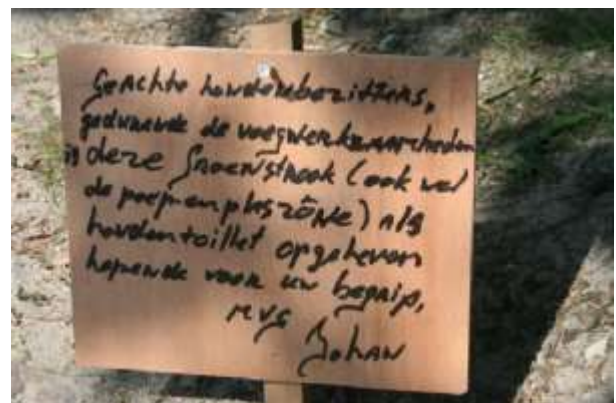 Geachte hondenbezitters,
gedurende de voegwerkzaamheden
is deze Groenstrook (ook wel
de poep en plas zône) als
hondentoillet opgeheven
hopende voor uw begrip,
MVG
Johan